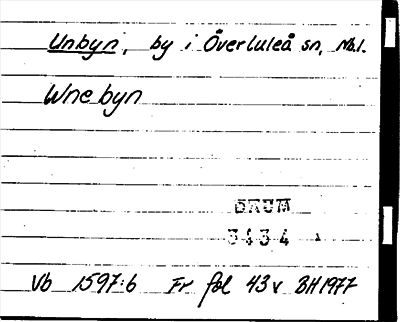 Unbyn, by i Överluleå sn, Nb.l.
Wnebyn
DAUM
3434
Vb 1597:6 Fr fol 43v BH1977